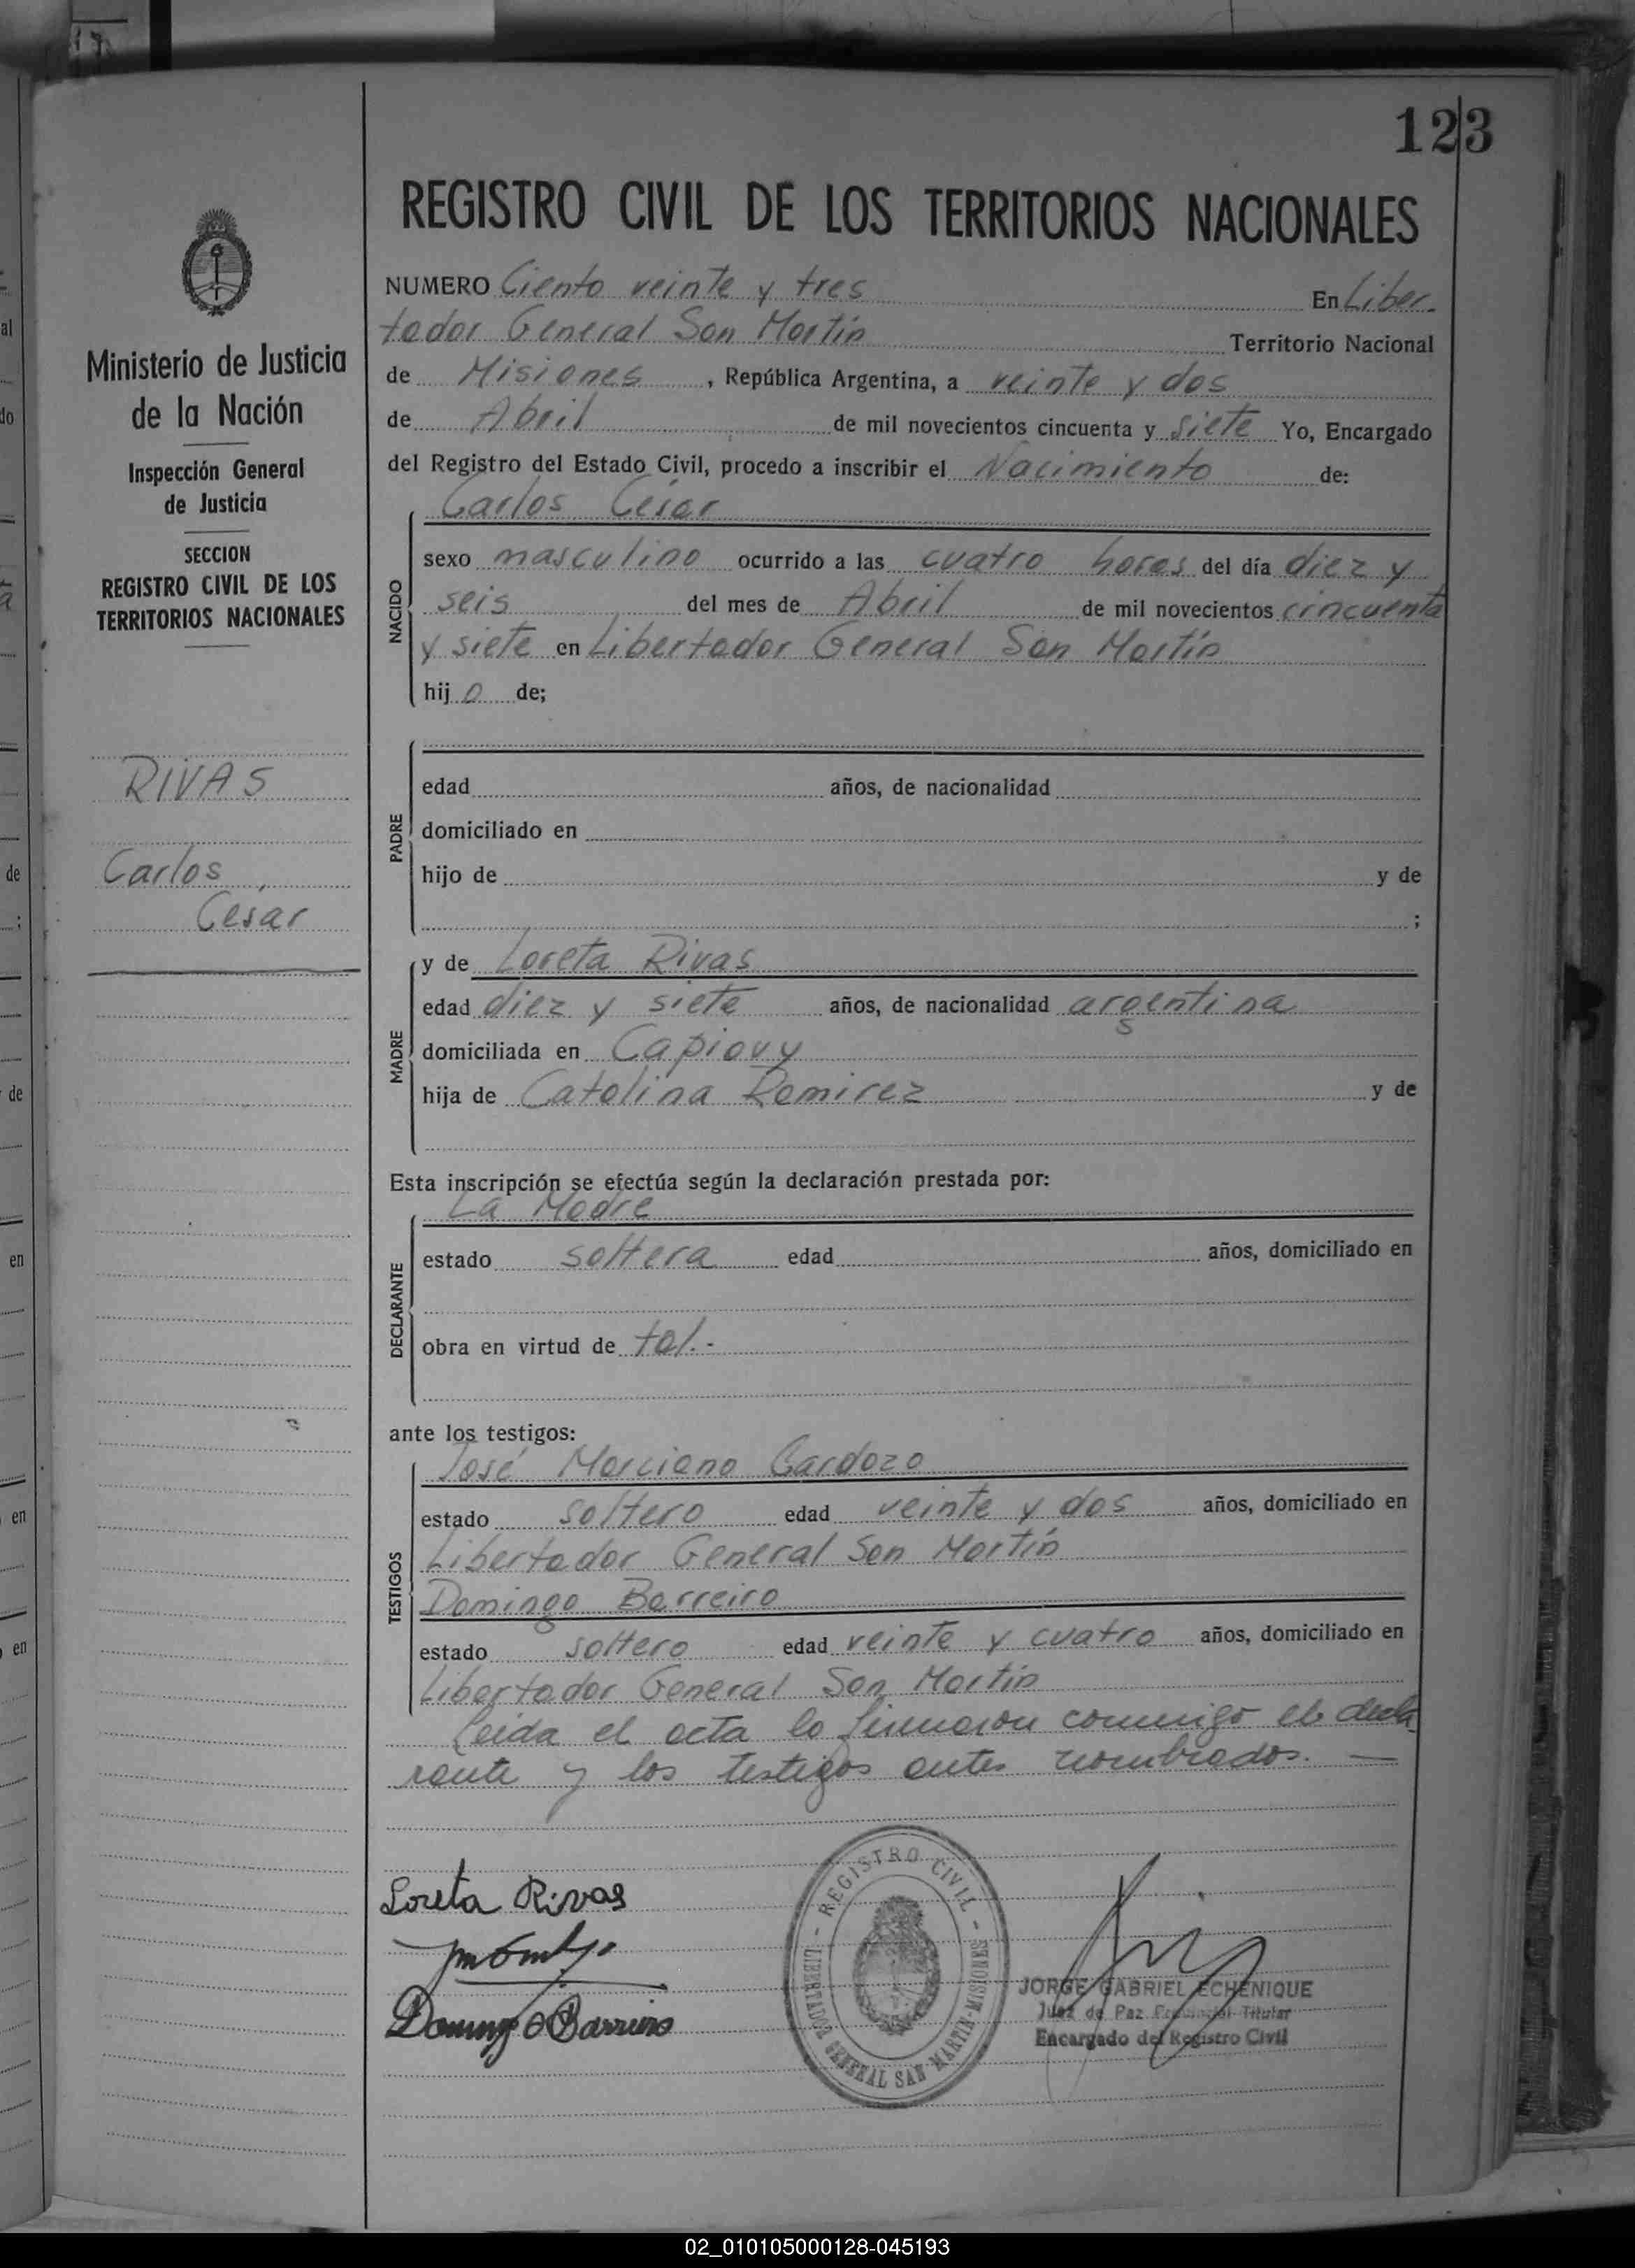 123
REGISTRO CIVIL DE LOS TERRITORIOS NACIONALES
Ministerio de Justicia
de la Nación
Inspección General
de Justicia
SECCION
REGISTRO CIVIL DE LOS
TERRITORIOS NACIONALES
RIVAS
Carlos
César
NUMERO Ciento veinte y tres En Liber-
tador General San Martín Territorio Nacional
de Misiones, República Argentina, a veinte y dos
de Abril de mil novecientos cincuenta y siete Yo, Encargado
del Registro del Estado Civil, procedo a inscribir el Nacimiento de:
Carlos César
NACIDO
sexo masculino ocurrido a las cuatro horas del día diez y
seis del mes de Abril de mil novecientos cincuenta
y siete en Libertador General San Martín
hijo de;
PADRE
edad años, de nacionalidad
domiciliado en
hijo de y de
;
MADRE
y de Loreta Rivas
edad diez y siete años, de nacionalidad argentina
domiciliada en Capiovy
hija de Catalina Ramirez y de
Esta inscripción se efectúa según la declaración prestada por:
La Madre
DECLARANTE
estado soltera edad años, domiciliado en
obra en virtud de tal.-
ante los testigos:
TESTIGOS
José Marciano Cardozo
estado soltero edad veinte y dos años, domiciliado en
Libertador General San Martín
Domingo Barreiro
estado soltero edad veinte y cuatro años, domiciliado en
Libertador General San Martín
Leída el acta la firmaron conmigo el decla
rante y los testigos antes nombrados. —
Loreta Rivas
Domingo Barreiro
- REGISTRO CIVIL -
LIBERTADOR GENERAL SAN MARTIN-MISIONES
JORGE GABRIEL ECHENIQUE
Juez de Paz Provincial Titular
Encargado del Registro Civil
02_010105000128-045193